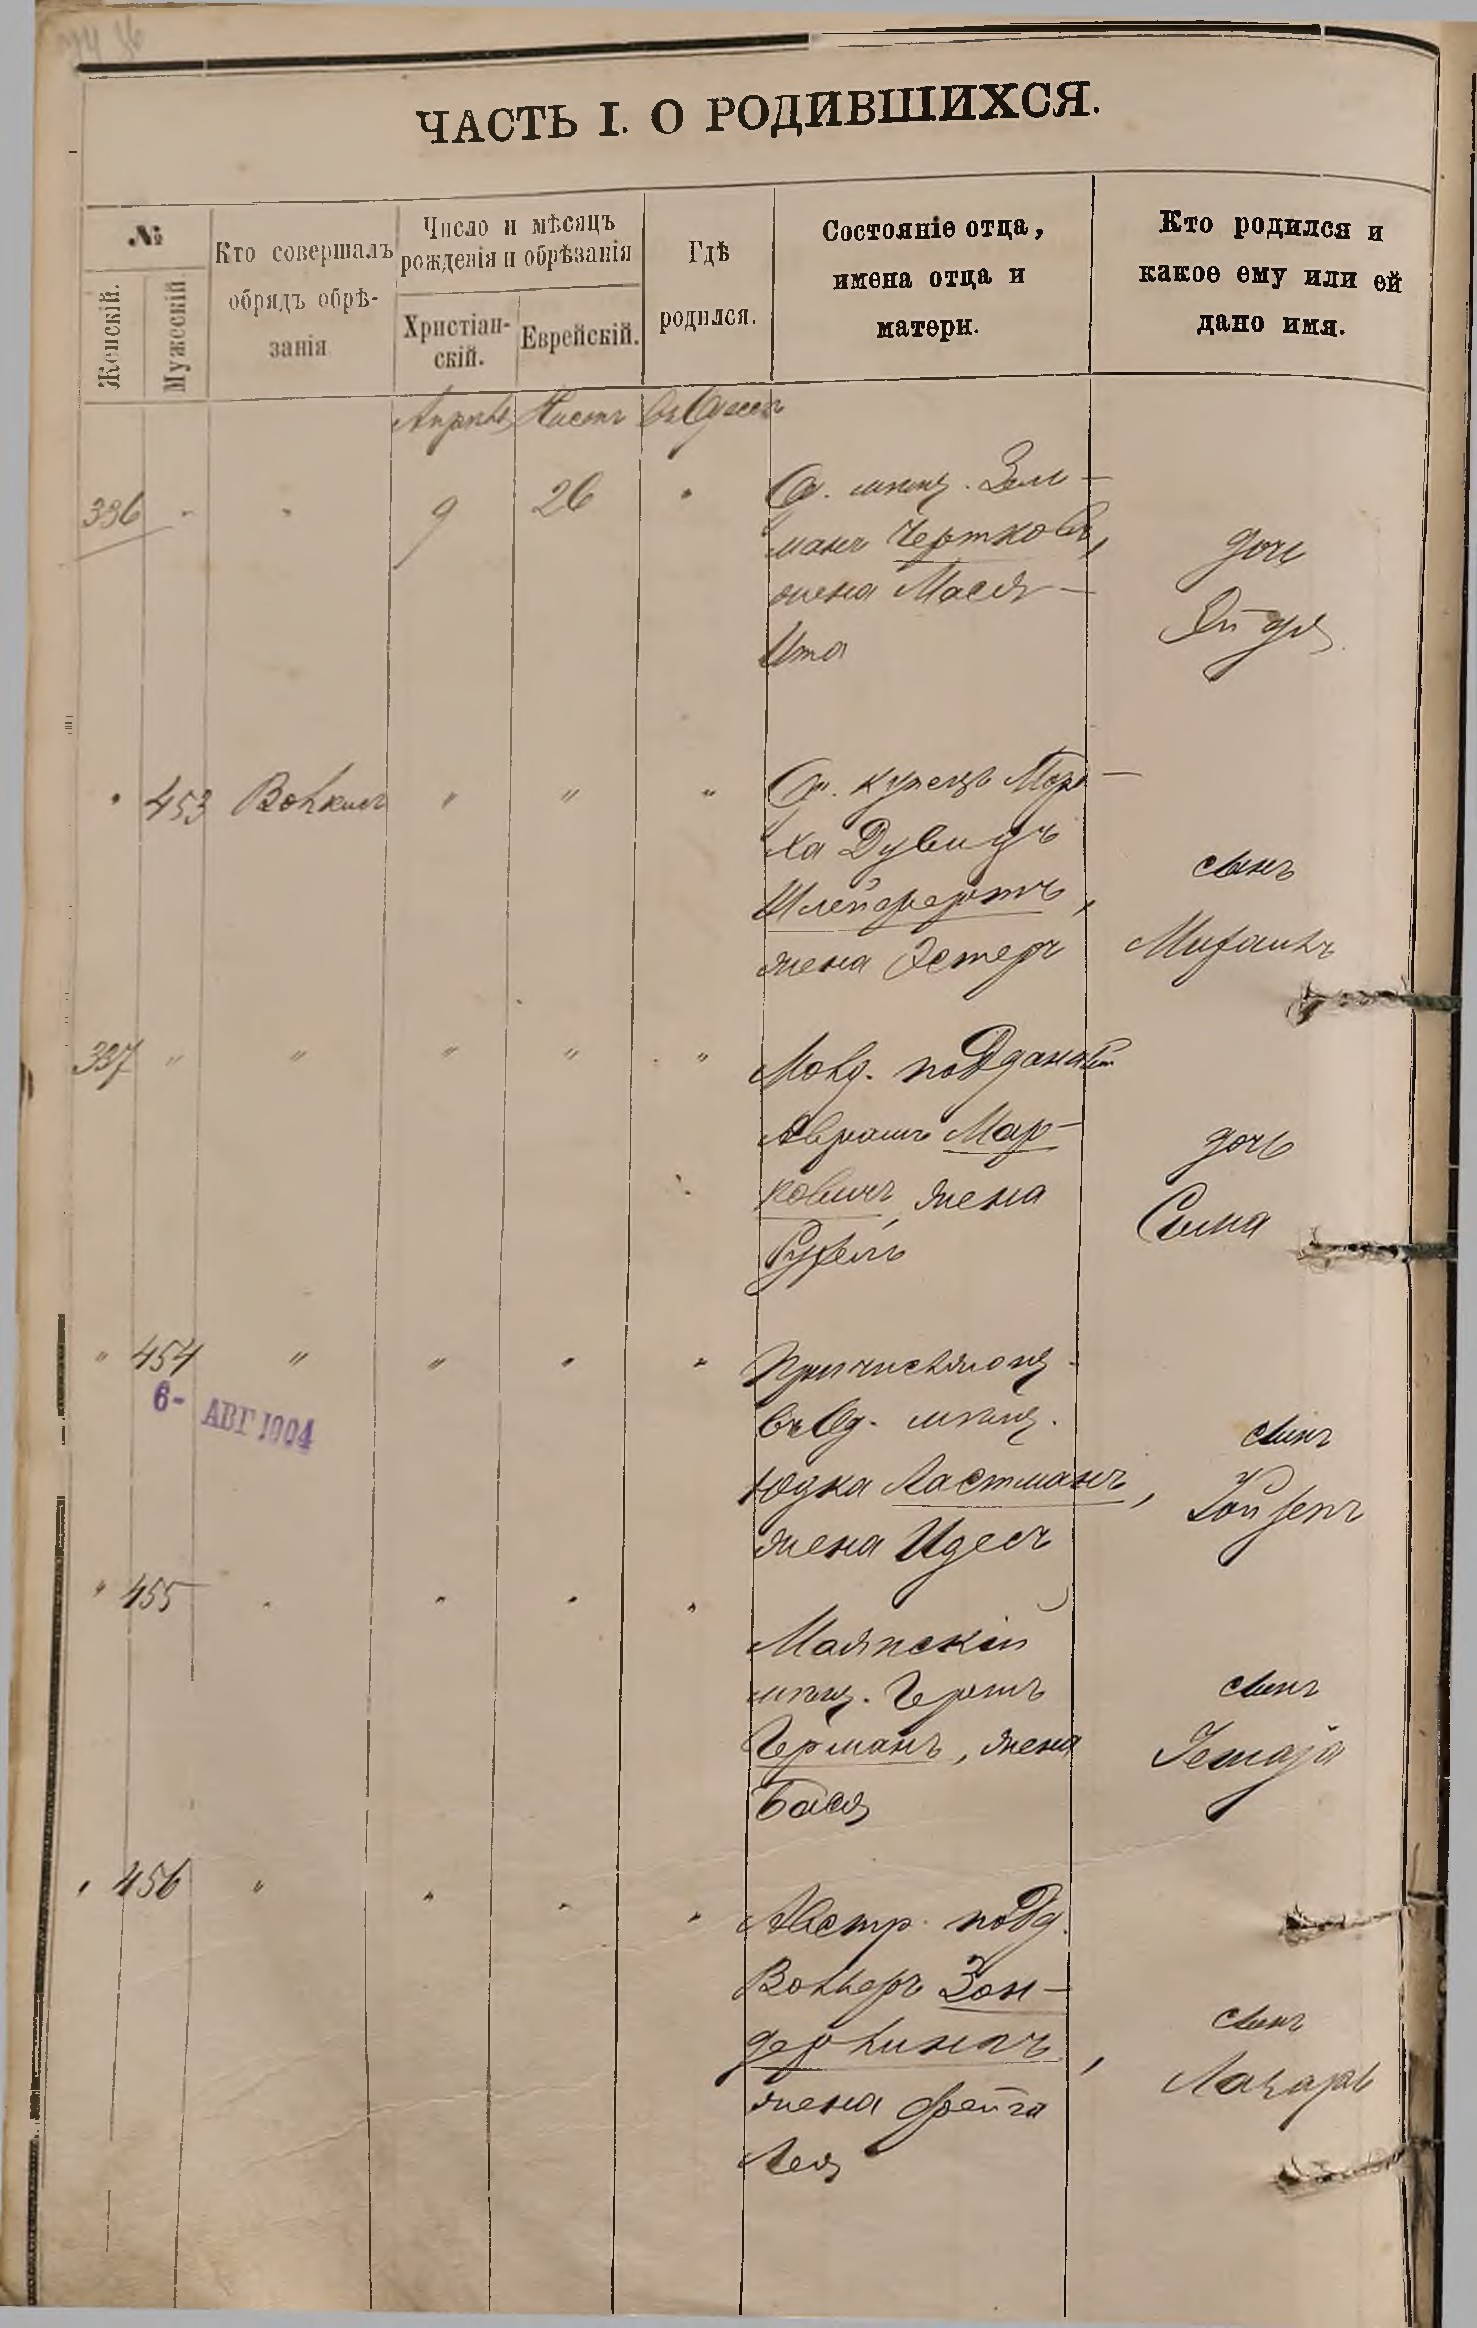 ЧАСТЬ I. О РОДИВШИХСЯ.
№
Женскій.
Мужескій
Кто совершалъ
обрядъ обрѣ-
занія
Число и мѣсяцъ
рожденія и обрѣзанія
Христіан-
скій.
Еврейскій.
Гдѣ
родился.
Состояніе отца,
имена отца и
матери.
Кто родился и
какое ему или ей
дано имя.
Апрѣль Нисонъ въ Одессѣ
336 " " 9 26 "
Од. мѣщ. Зель-
манъ Чертковъ,
жена Мася-
Ита
дочь
Эйдля
" 453 Волкисъ " " "
Од. купецъ Морд-
ха Дувидъ
Шлейферъ,
жена Эстеръ
сынъ
Михаилъ
337 " " " " "
Молд. подданный
Аврамъ Мар-
ковичъ, жена
Рухель
дочь
Сима
" 454 " " " "
6- АВГ 1904
Причисляющ.
въ Од. мѣщ.
Юдка Ластманъ,
жена Идесъ
сынъ
" 455 " " " "
Маякскій
мѣщ. Гершъ
Германъ, жена
Бася
сынъ
Іешаја
" 456 " " " "
Австр. подд.
Вольфъ Зон-
дерлингъ,
жена Фейга
Лея
сынъ
Лазарь